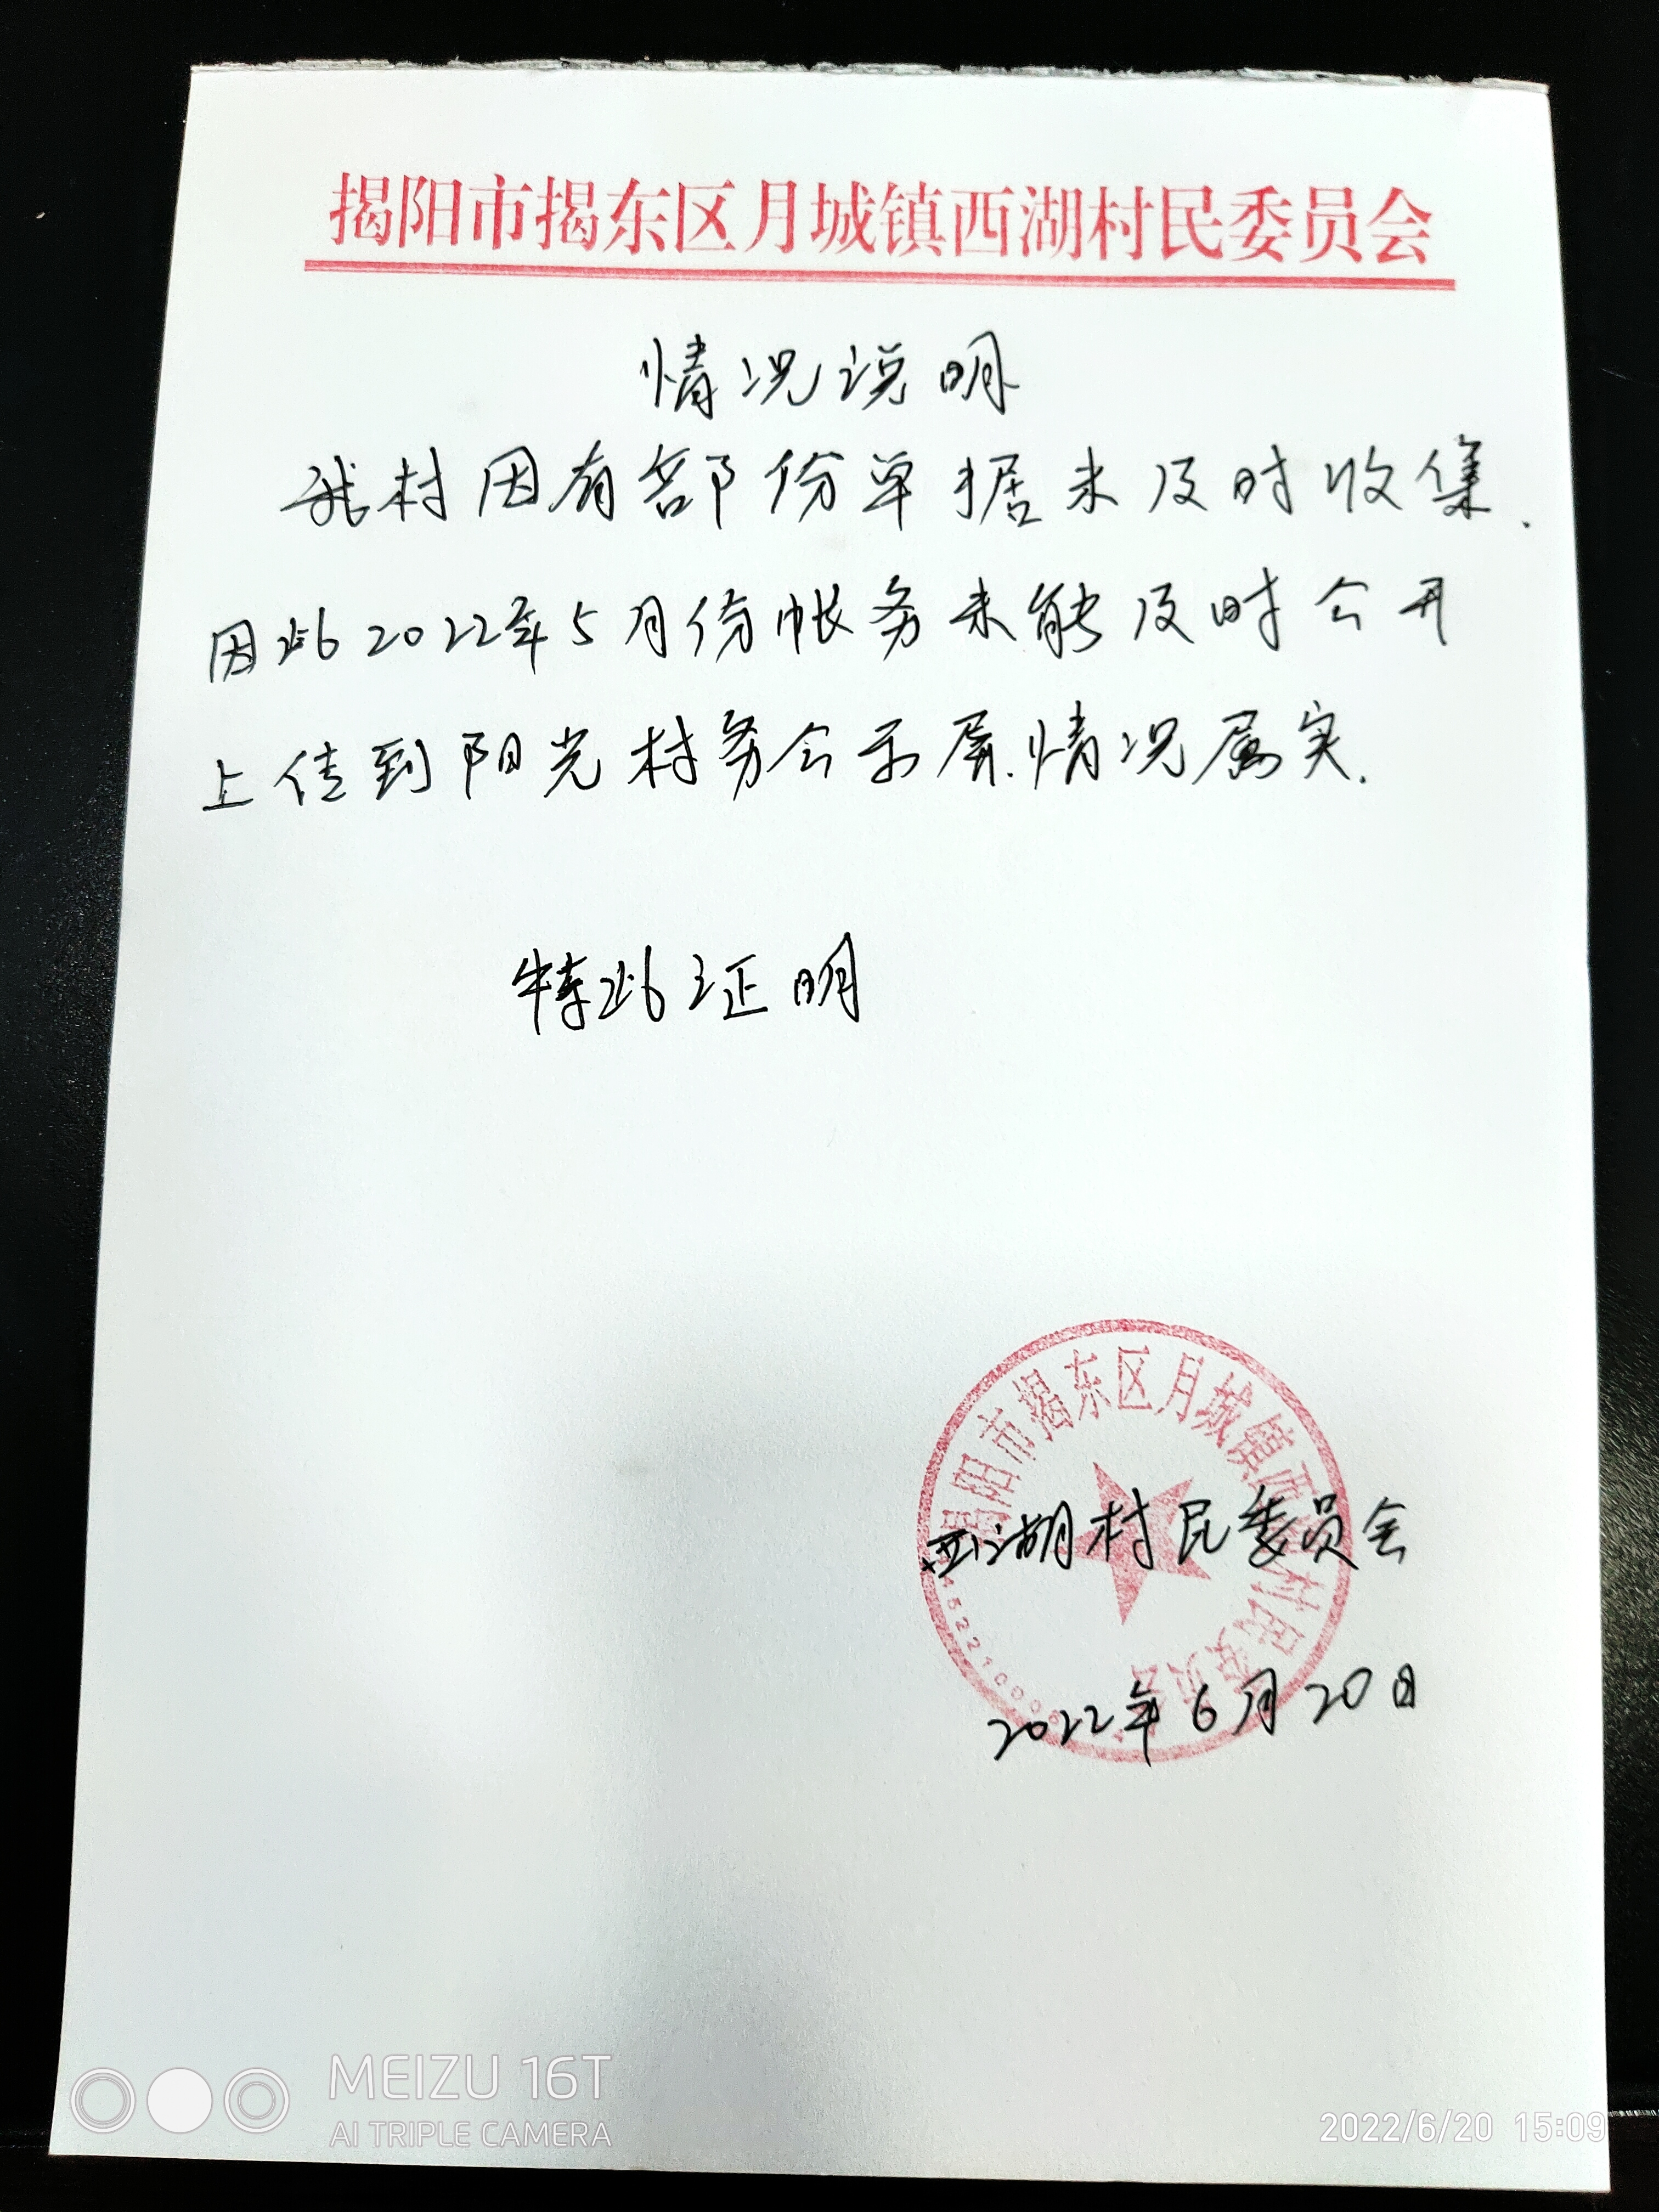 揭阳市揭东区月城镇西湖村民委员会
情况说明
我村因有部份单据未及时收集.
因此2022年5月份帐务未能及时公开
上传到阳光村务公示屏.情况属实.
特此证明
揭阳市揭东区月城镇西湖村民委员会
西湖村民委员会
2022年6月20日
MEIZU 16T
AI TRIPLE CAMERA
2022/6/20 15:09